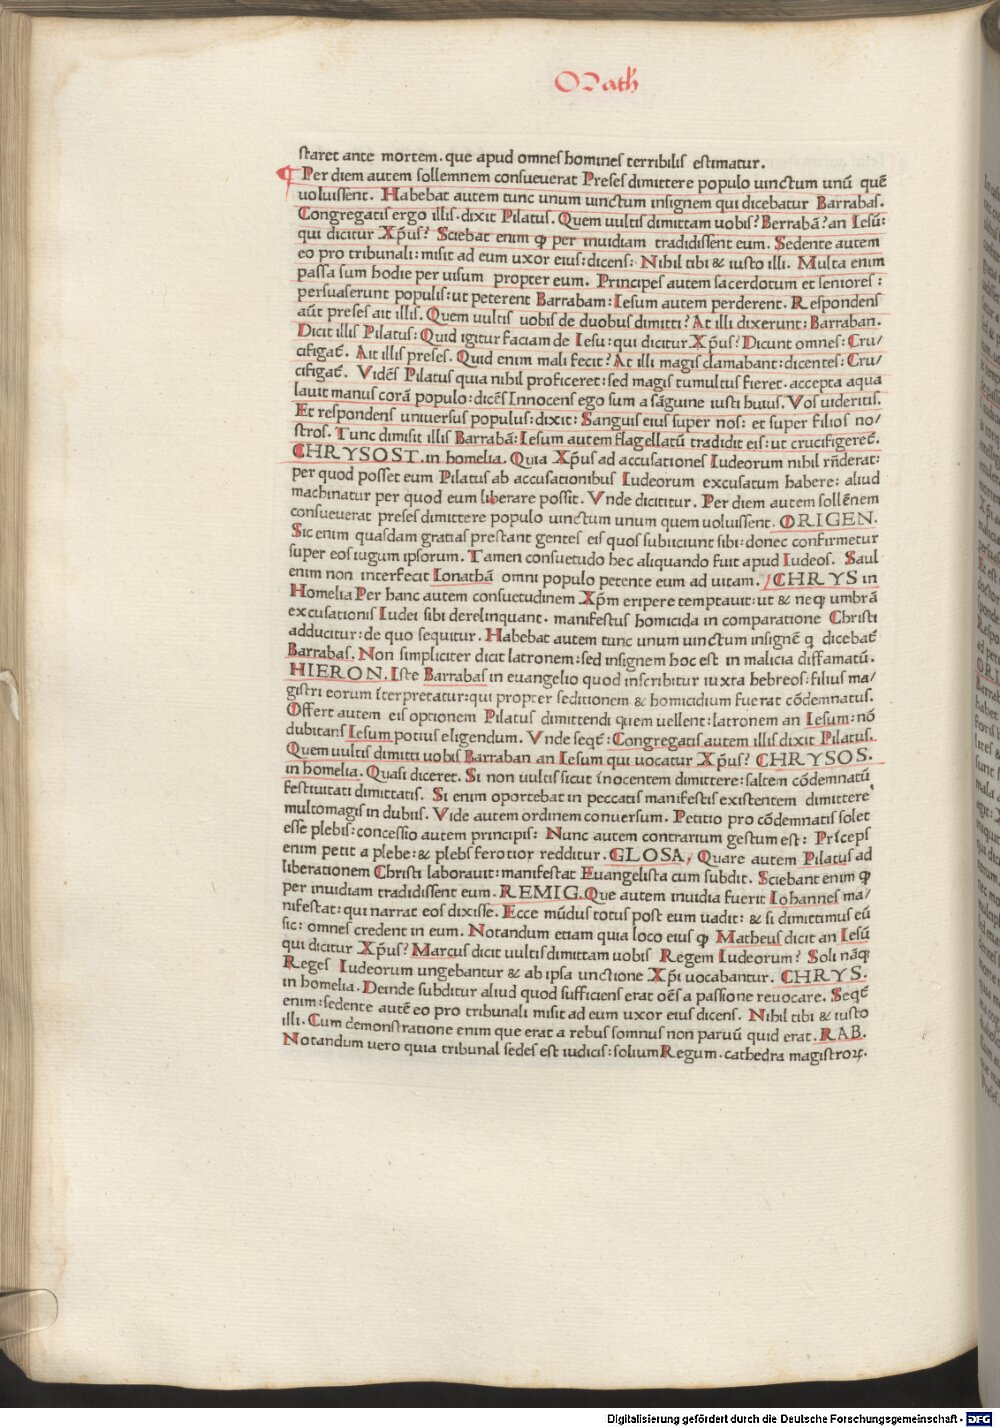 Math
staret ante mortem. que apud omnes homines terribilis estimatur.
Per diem autem sollemnem consueuerat Preses dimittere populo uinctum unū quē
uoluissent. Habebat autem tunc unum uinctum insignem qui dicebatur Barrabas.
Congregatis ergo illis. dixit Pilatus. Quem uultis dimittam uobis? Berrabā? an Iesū:
qui dicitur Xp̄us? Sciebat enim ꝙ per inuidiam tradidissent eum. Sedente autem
eo pro tribunali: misit ad eum uxor eius: dicens: Nihil tibi & iusto illi. Multa enim
passa sum hodie per uisum propter eum. Principes autem sacerdotum et seniores:
persuaserunt populis: ut peterent Barrabam: Iesum autem perderent. Respondens
aūt preses ait illis. Quem uultis uobis de duobus dimitti? At illi dixerunt: Barraban.
Dicit illis Pilatus: Quid igitur faciam de Iesu: qui dicitur Xp̄us? Dicunt omnes: Cru/
cifigat̄. Ait illis preses. Quid enim mali fecit? At illi magis clamabant: dicentes: Cru/
cifigat̄. Vidēs Pilatus quia nihil proficeret: sed magis tumultus fieret. accepta aqua
lauit manus corā populo: dicēs Innocens ego sum a sāguine iusti huius. Vos uideritis.
Et respondens uniuersus populus: dixit: Sanguis eius super nos: et super filios no/
stros. Tunc dimisit illis Barrabā: Iesum autem flagellatū tradidit eis: ut crucifigeret̄.
CHRYSOST. in homelia. Quia Xp̄us ad accusationes Iudeorum nihil rn̄derat:
per quod posset eum Pilatus ab accusationibus Iudeorum excusatum habere: aliud
machinatur per quod eum liberare possit. Vnde dicititur. Per diem autem sollēnem
consueuerat preses dimittere populo uinctum unum quem uoluissent. ORIGEN.
Sic enim quasdam gratias prestant gentes eis quos subiiciunt sibi: donec confirmetur
super eos iugum ipsorum. Tamen consuetudo hec aliquando fuit apud Iudeos. Saul
enim non interfecit Ionathā omni populo petente eum ad uitam. CHRYS in
Homelia Per hanc autem consuetudinem Xp̄m eripere temptauit: ut & neqꝫ umbrā
excusationis Iudei sibi derelinquant. manifestus homicida in comparatione Christi
adducitur: de quo sequitur. Habebat autem tunc unum uinctum insignē q̄ dicebat̄
Barrabas. Non simpliciter dicit latronem: sed insignem hoc est in malicia diffamatū.
HIERON. Iste Barrabas in euangelio quod inscribitur iuxta hebreos: filius ma/
gistri eorum īterpretatur: qui propter seditionem & homicidium fuerat cōdemnatus.
Offert autem eis optionem Pilatus dimittendi quem uellent: latronem an Iesum: nō
dubitans Iesum potius eligendum. Vnde seqt̄: Congregatis autem illis dixit Pilatus.
Quem uultis dimitti uobis Barraban an Iesum qui uocatur Xp̄us? CHRYSOS.
in homelia. Quasi diceret. Si non uultis sicut īnocentem dimittere: saltem cōdemnatū
festiuitati dimittatis. Si enim oportebat in peccatis manifestis existentem dimittere
multomagis in dubiis. Vide autem ordinem conuersum. Petitio pro cōdemnatis solet
esse plebis: concessio autem principis: Nunc autem contrarium gestum est: Prīceps
enim petit a plebe: & plebs ferotior redditur. GLOSA, Quare autem Pilatus ad
liberationem Christi laborauit: manifestat Euangelista cum subdit. Sciebant enim ꝙ
per inuidiam tradidissent eum. REMIG. Que autem inuidia fuerit Iohannes ma/
nifestat: qui narrat eos dixisse. Ecce mūdus totus post eum uadit: & si dimittimus eū
sic: omnes credent in eum. Notandum etiam quia loco eius ꝙ Matheus dicit an Iesū
qui dicitur Xp̄us? Marcus dicit uultis dimittam uobis Regem Iudeorum? Soli nāqꝫ
Reges Iudeorum ungebantur & ab ipsa unctione Xp̄i uocabantur. CHRYS.
in homelia. Deinde subditur aliud quod sufficiens erat oēs a passione reuocare. Seqt̄
enim: sedente autē eo pro tribunali misit ad eum uxor eius dicens. Nihil tibi & iusto
illi. Cum demonstratione enim que erat a rebus somnus non paruū quid erat. RAB.
Notandum uero quia tribunal sedes est iudicis: solium Regum. cathedra magistroꝝ.
Digitalisierung gefördert durch die Deutsche Forschungsgemeinschaft - DFG